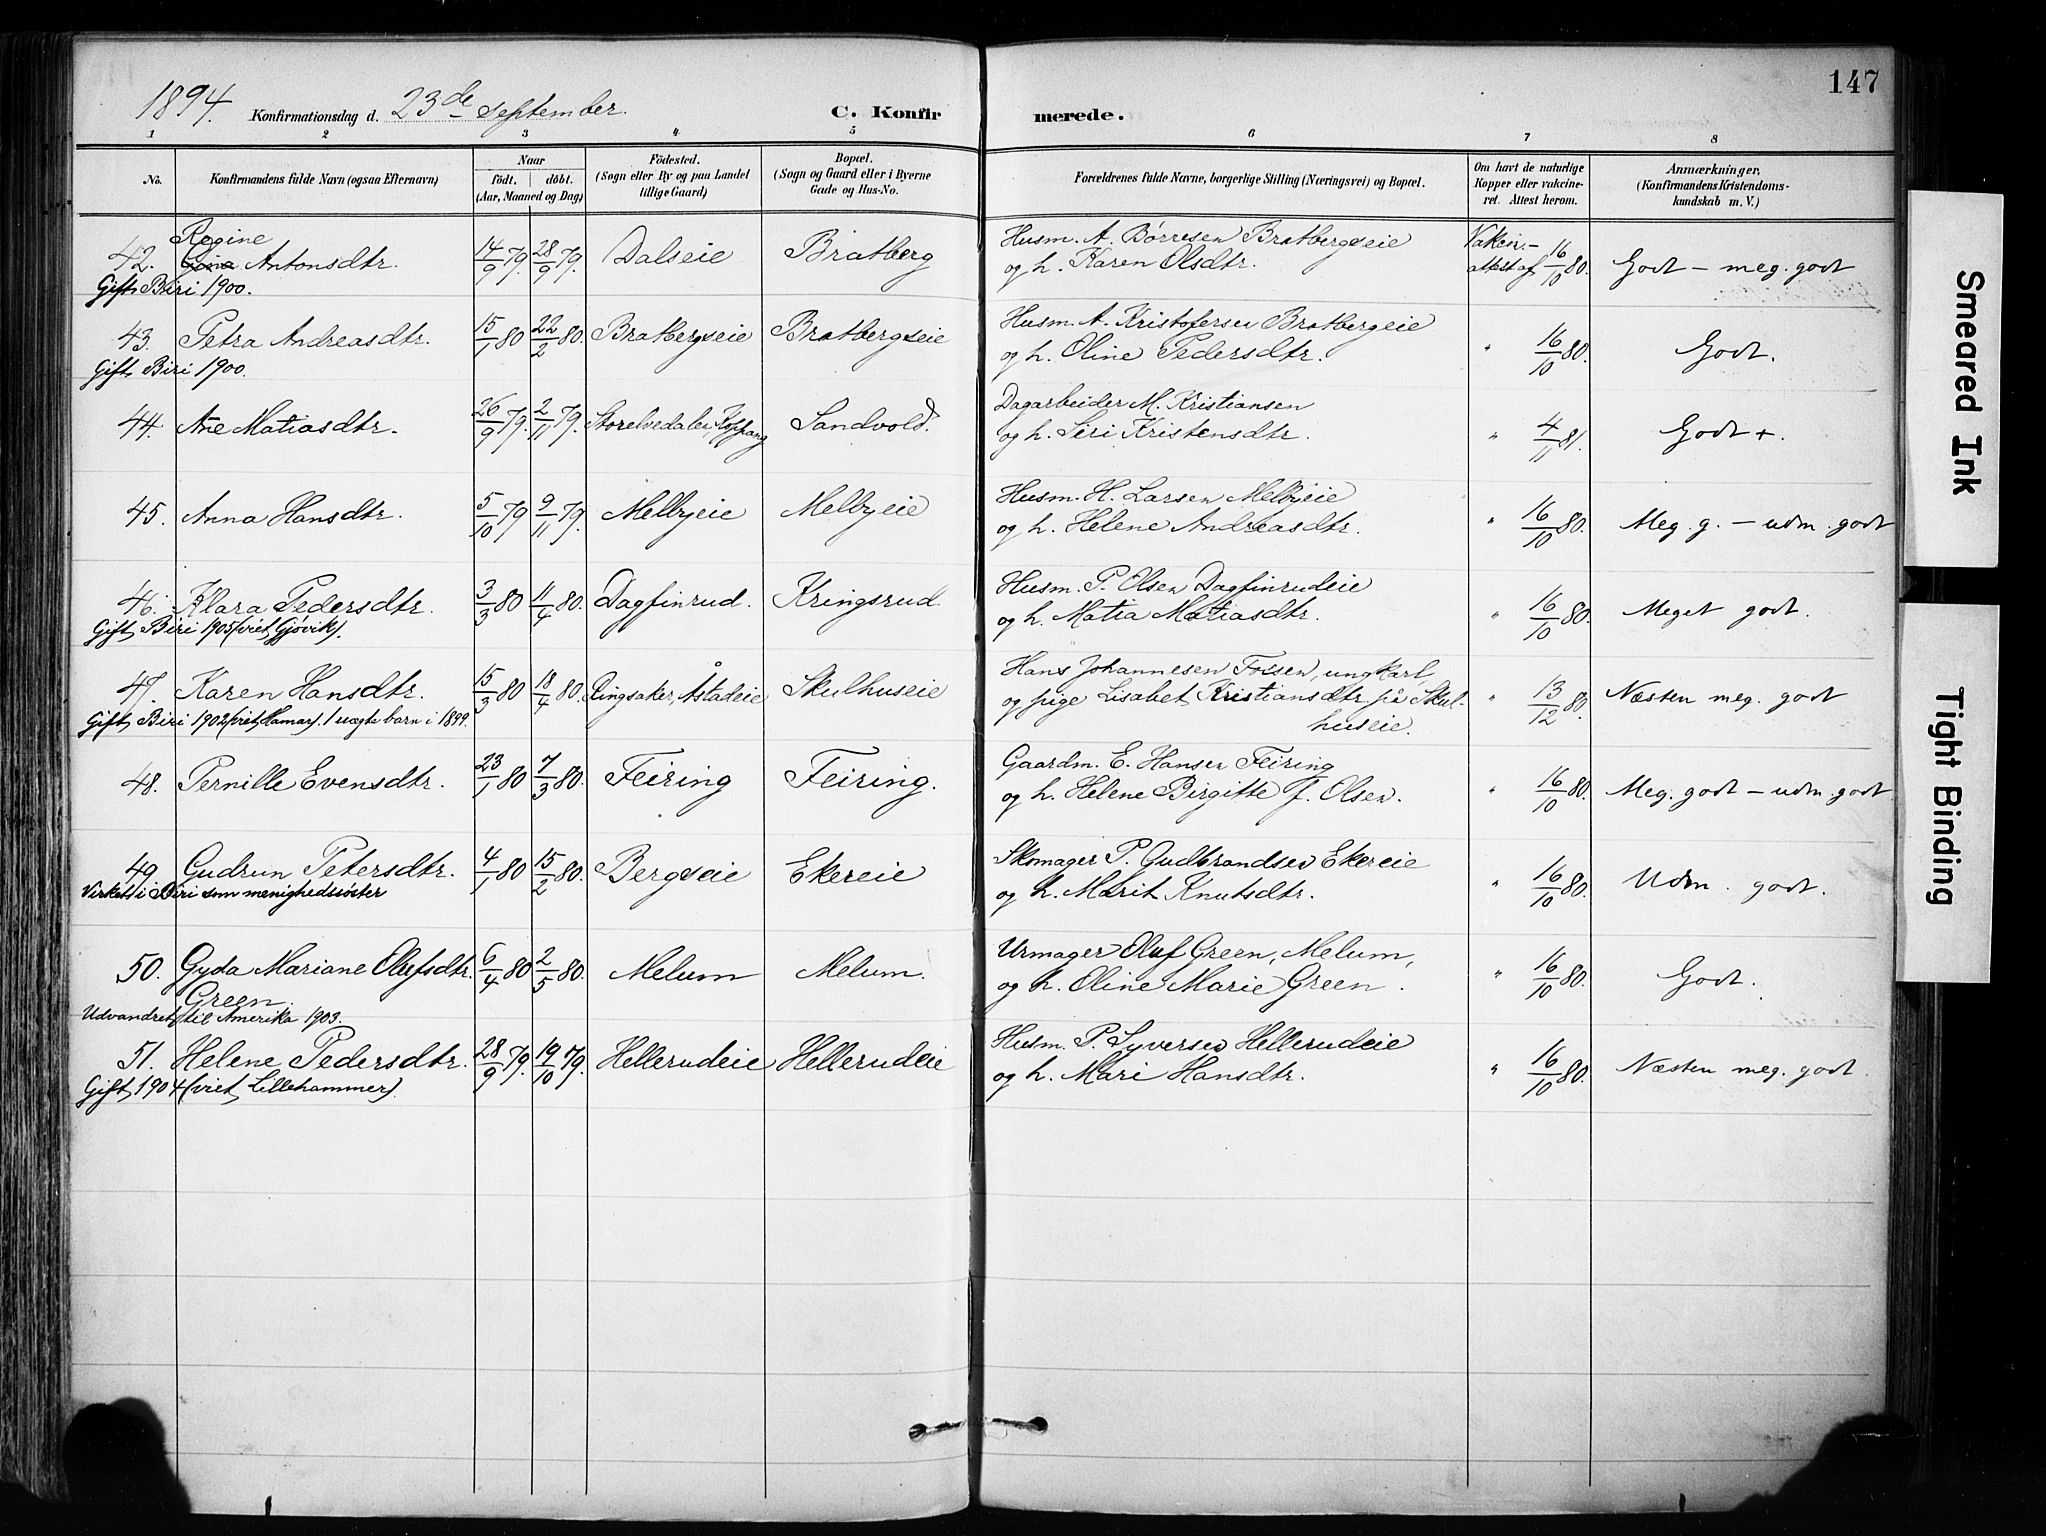 147
1894. Konfirmationsdag d. 23de September. C. Konfirmerede.
1 2 3 4 5 6 7 8
No. Konfirmandens fulde Navn (ogsaa Efternavn) Naar födt. döbt. (Aar, Maaned og Dag) Födested. (Sogn eller By og paa Landet tillige Gaard) Bopæl. (Sogn og Gaard eller i Byerne Gade og Hus-No. Forældrenes fulde Navne, borgerlige Stilling (Næringsvei) og Bopæl. Om havt de naturlige Kopper eller vakcineret. Attest herom. Anmærkninger. (Konfirmandens Kristendomskundskab m. V.)
Regine
42. Gina Antonsdtr. 14/9 79. 28/9 79. Dalseie Bratberg Husm. A. Børresen Bratbergseie
og h. Karen Olsdtr. Vakcin.-attest af 16/10 80. Godt – meg. godt
Gift, Biri 1900.
43. Petra Andreasdtr. 15/1 80 22/2 80. Bratbergseie Bratbergseie Husm. A. Kristofersen Bratbergeie
og h. Oline Pedersdtr. " 16/10 80. Godt.
Gift, Biri 1900.
44. Ane Matiasdtr. 26/9 79. 2/11 79. Storelvedalen, Koppang Sandvold. Dagarbeider M. Kristiansen
og h. Siri Kristensdtr. " 4/11 81. Godt +.
45. Anna Hansdtr. 5/10 79 9/11 79. Melbyeie Melbyeie Husm. H. Larsen Melbyeie
og h. Helene Andreasdtr. " 16/10 80. Meg. g. – udm. godt
46. Klara Pedersdtr. 3/3 80 11/4 80. Dagfinrud. Kringsrud Husm. P. Olsen Dagfinrudeie
og h. Matia Matiasdtr. " 16/10 80. Meget godt.
Gift, Biri 1905 (viet Gjøvik).
47. Karen Hansdtr. 15/3 80 18/4 80. Ringsaker, Åstadeie Skulhuseie Hans Johannesen Fossen, ungkarl,
og pige Lisabet Kristiansdtr. på Skulhuseie. " 13/12 80. Næsten meg. godt
Gift, Biri 1902 (viet Hamar). 1 uægte barn i 1899.
48. Pernille Evensdtr. 23/1 80 7/3 80. Feiring Feiring. Gaardm. E. Hansen Feiring
og h. Helene Birgitte f. Olsen. " 16/10 80. Meg. godt – udm. godt
49. Gudrun Petersdtr. 4/1 80 15/2 80. Bergseie Ekereie Skomager P. Gudbrandsen Ekereie
og h. Marit Knutsdtr. " 16/10 80. Udm. godt.
Virket i Biri som menighedssøster
50. Gyda Mariane Olufsdtr. 6/4 80 2/5 80. Melum Melum. Urmager Oluf Green, Melum,
Green. og h. Oline Marie Green. " 16/10 80. Godt.
Udvandret til Amerika 1903.
51. Helene Pedersdtr. 28/9 79. 19/10 79. Hellerudeie Hellerudeie Husm. P. Syversen Hellerudeie
og h. Mari Hansdtr. " 16/10 80. Næsten meg. godt.
Gift, 1904 (viet, Lillehammer).
Smeared Ink
Tight Binding